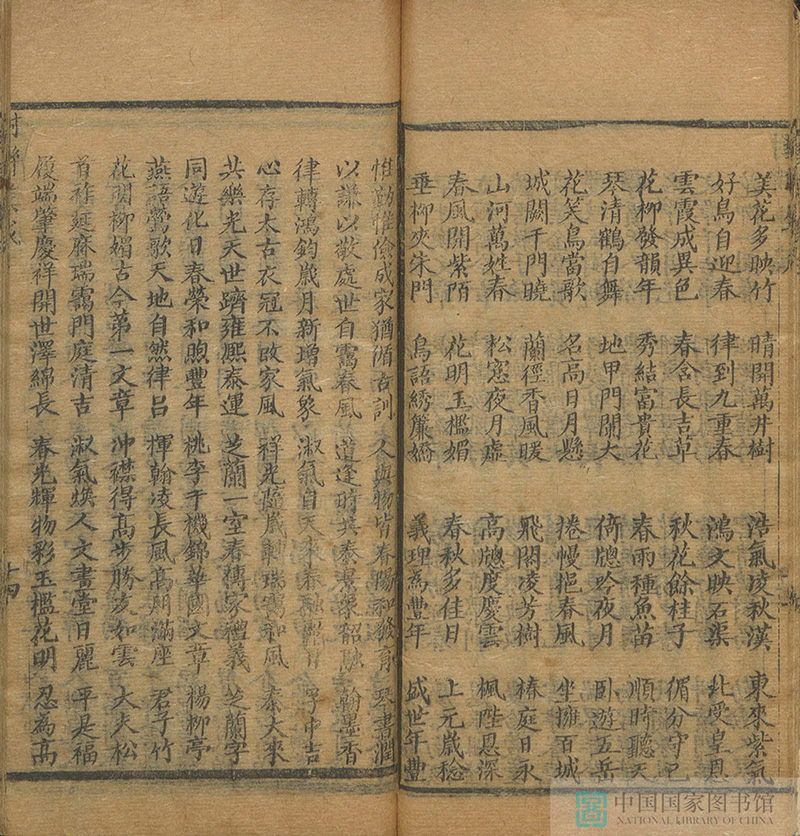 美花多映竹 晴開萬井樹 浩氣凌秋漢 東來紫氣
好鳥自迎春 律到九重春 鴻文映石渠 北受皇恩
雲霞成異色 春含長吉草 秋花餘桂子 循分守己
花柳發韻年 秀結富貴花 春雨種魚苗 順時聽天
琴清鶴自舞 地甲門闌大 倚牕吟夜月 臥遊五岳
花笑鳥當歌 名高日月懸 捲幔挹春風 坐擁百城
城闕千門曉 蘭徑香風暖 飛閣凌芳樹 椿庭日永
山河萬姓春 松窓夜月虛 高牕度慶雲 楓陛恩深
春風開紫陌 花明玉檻媚 春秋多佳日 上元歲稔
垂柳夾朱門 鳥語綉簾嬌 義理為豐年 盛世年豐
惟勤惟儉成家猶循古訓 人與物皆春陽和發育 琴書潤
以謙以敬處世自靄春風 道逢時共泰景象韶融 翰墨香
律轉鴻鈞歲月新增氣象 淑氣自天來春 孚中吉
心存太古衣冠不改家風 祥光隨歲 瑞靄和風 泰大來
共樂光天世躋雍熙泰運 芝蘭一室春傳家禮義 芝蘭字
同遊化日春榮和煦豐年 桃李千機錦華國文章 楊柳亭
燕語鶯歌天地自然律呂 揮翰凌長風高朋滿座 君子竹
花開柳媚古今第一文章 冲襟得高步勝友如雲 大夫松
首祚延庥瑞靄門庭清古 淑氣煥人文書堂日麗 平是福
履端肇慶祥開世澤綿長 春光輝物彩玉檻花明 忍為高
十四
中国国家图书馆
NATIONAL LIBRARY OF CHINA